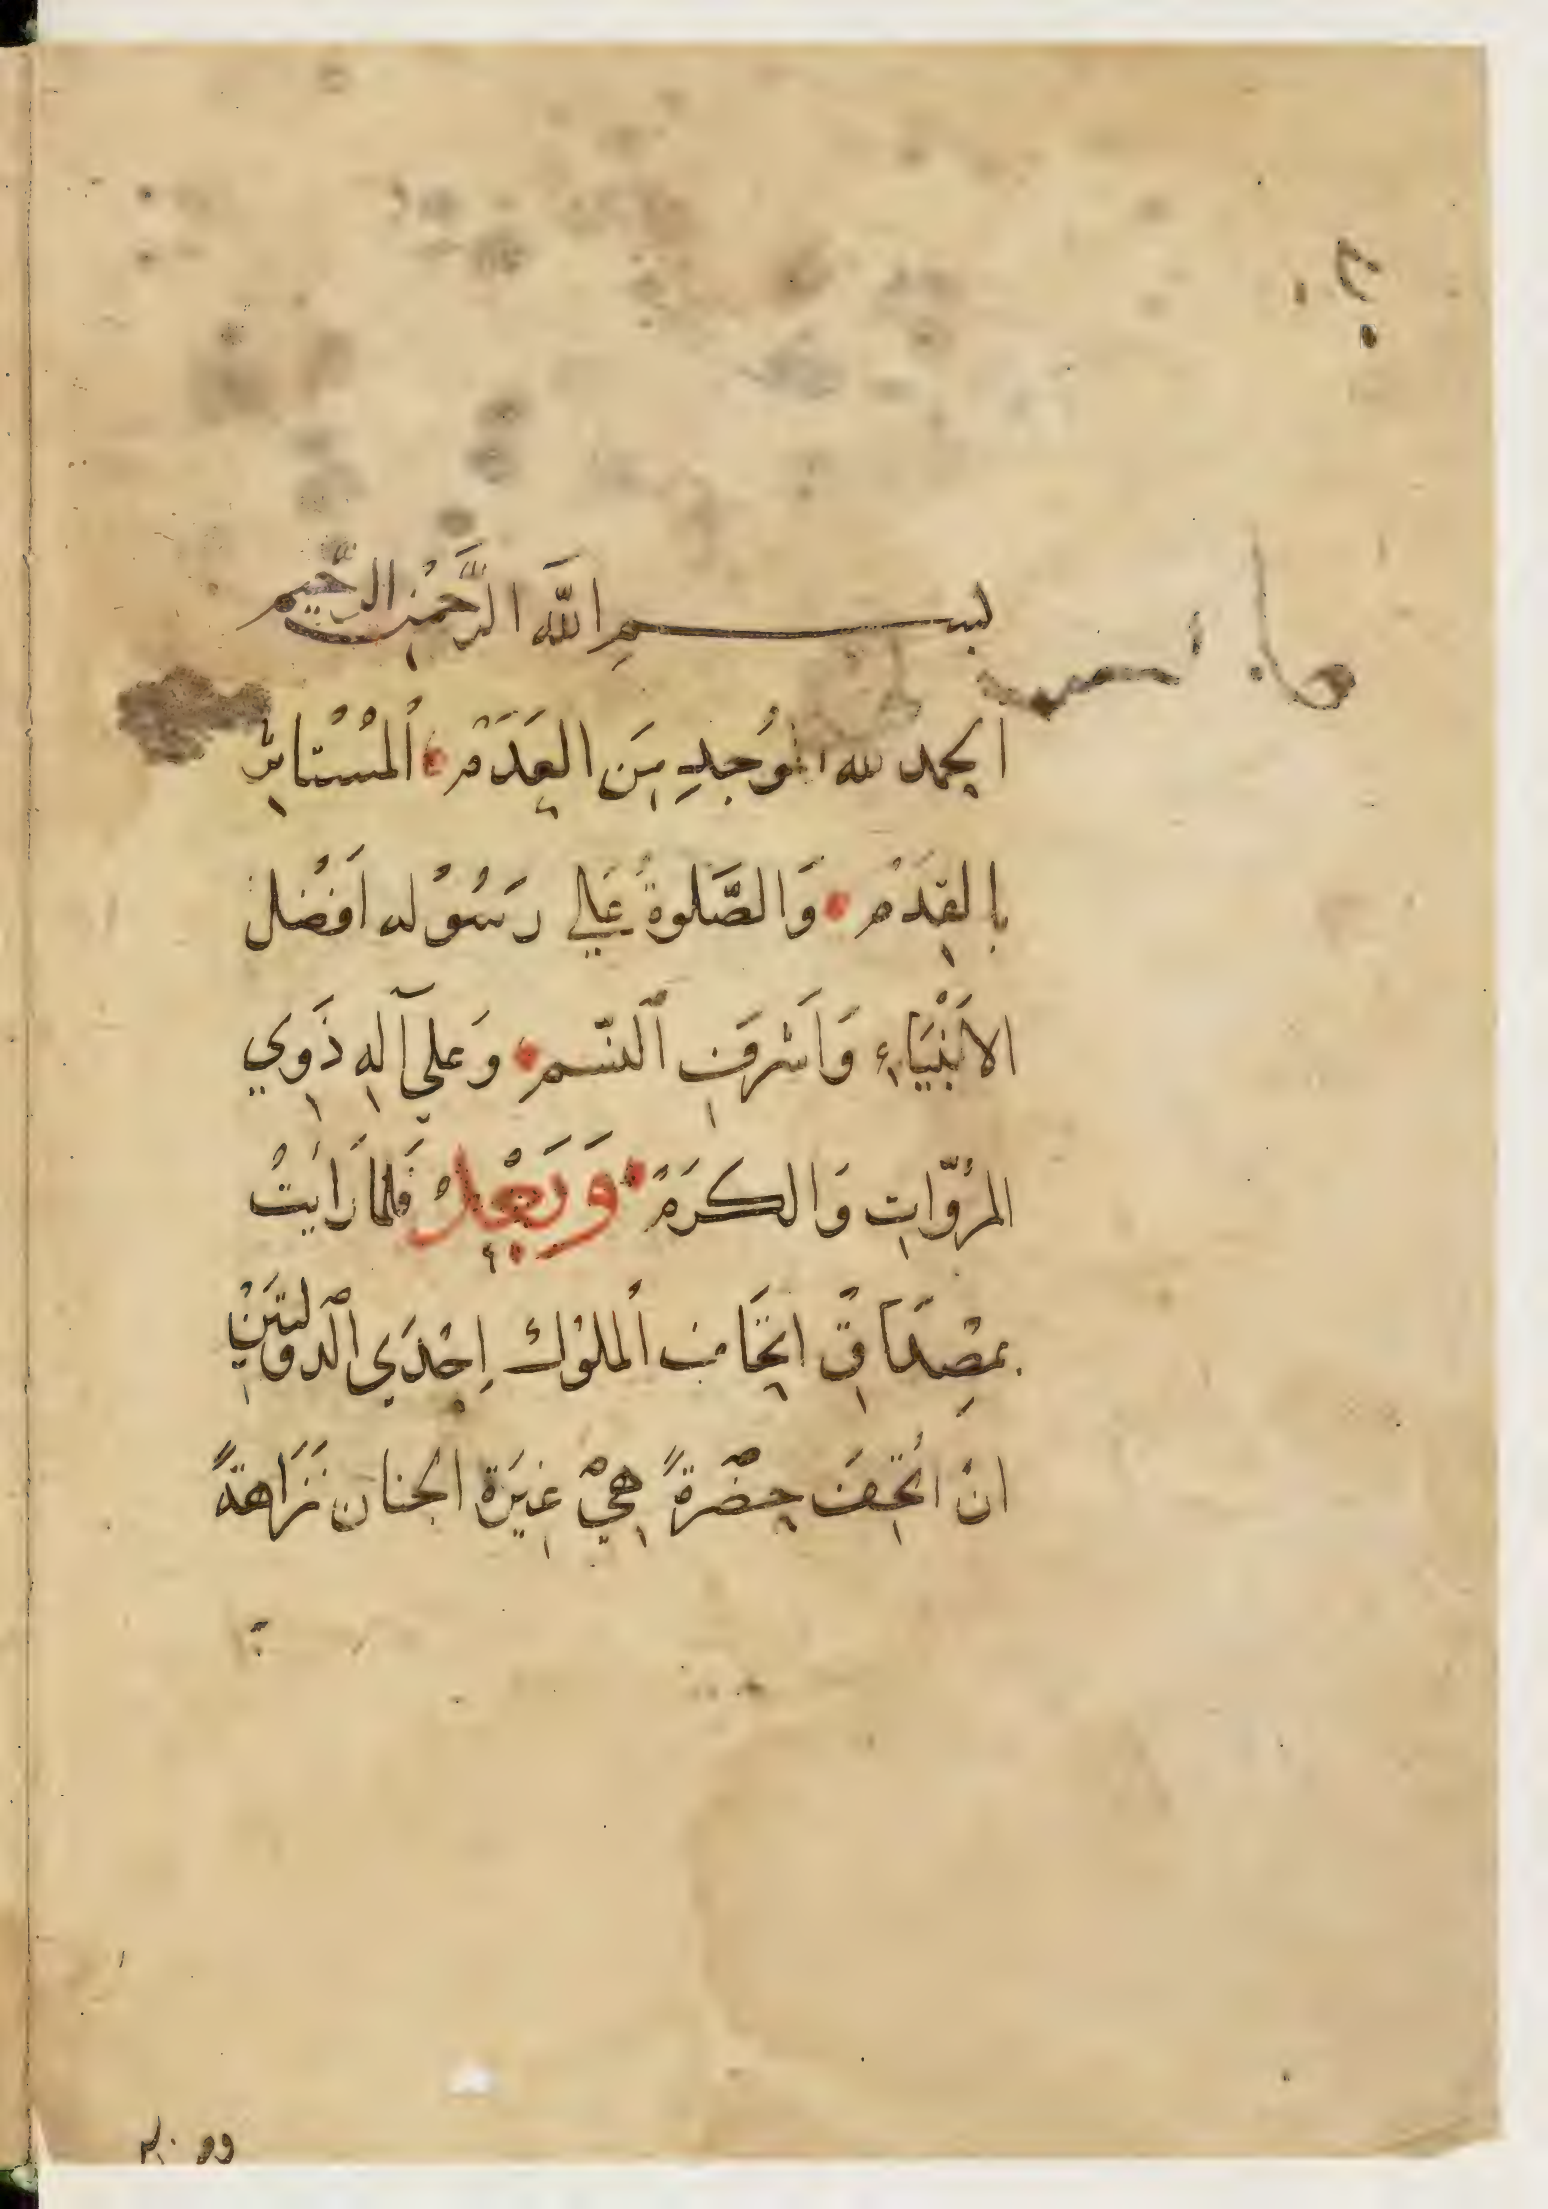 بسم الله الرَّحمٰنِ الرَّحيم
الحمد لله المُوجِدِ مِنَ العَدَمْ المُسْتَاثِرِ
بِالقِدَمْ وَالصَّلوةُ عَلي رَسُوْله اَفْضَل
الاَنْبيَاءِ وَاَشرَفِ النّسم وَعلي آلِهِ ذَوِي
المرُوّاتِ وَالكرَمْ وَبَعْدُ فَلمّا رَاَيتُ
بمصْدَاقِ اتحَاف المُلوْك اِحْدَي الدولتَيْنِ
انْ اُتحِفَ حضْرةً هِيَ غِيَرة الجنان نَزَاهةً